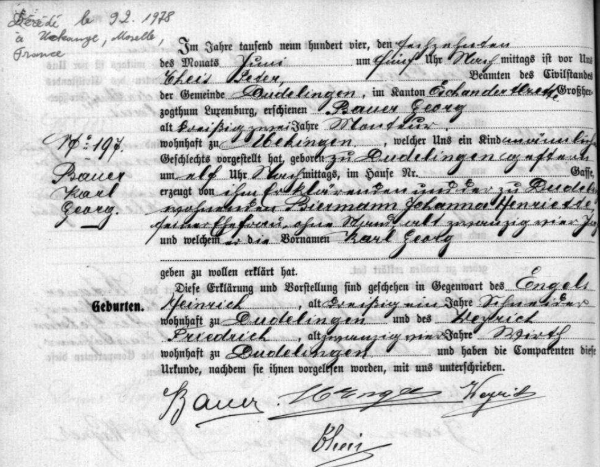 Décédé le 9 2. 1978
à Uckange, Moselle,
France
Im Jahre tausend neun hundert vier, den sechzehnten
des Monats Juni um fünf Uhr Nachmittags ist vor Uns
Theis Peter, Beamten des Civilstandes
der Gemeinde Dudelingen, im Kanton Esch an der Alzette Großher-
zogthum Luxemburg, erschienen Bauer Georg
alt dreißig zwei Jahre Monteur
wohnhaft zu , welcher Uns ein Kind männlich
Geschlechts vorgestellt hat, geboren zu Dudelingen gestern
um elf Uhr Nachmittags, im Hause Nr. Gasse,
erzeugt von ihm Erklärenden und der zu Dudel
wohnenden Biermann Johanna Henriette
seiner Ehefrau, ohne Stand, alt zwanzig vier
und welchem er die Vornamen Karl Georg
geben zu wollen erklärt hat.
Nº 197
Bauer
Karl
Georg.
Geburten.
Diese Erklärung und Vorstellung sind geschehen in Gegenwart des Engels
Heinrich, alt dreißig ein Jahre Schneider
wohnhaft zu Dudelingen und des Weyrich
Friedrich, alt zwanzig vier Jahre Wirth
wohnhaft zu Dudelingen und haben die Comparenten diese
Urkunde, nachdem sie ihnen vorgelesen worden, mit uns unterschrieben.
Bauer Weyrich
Theis